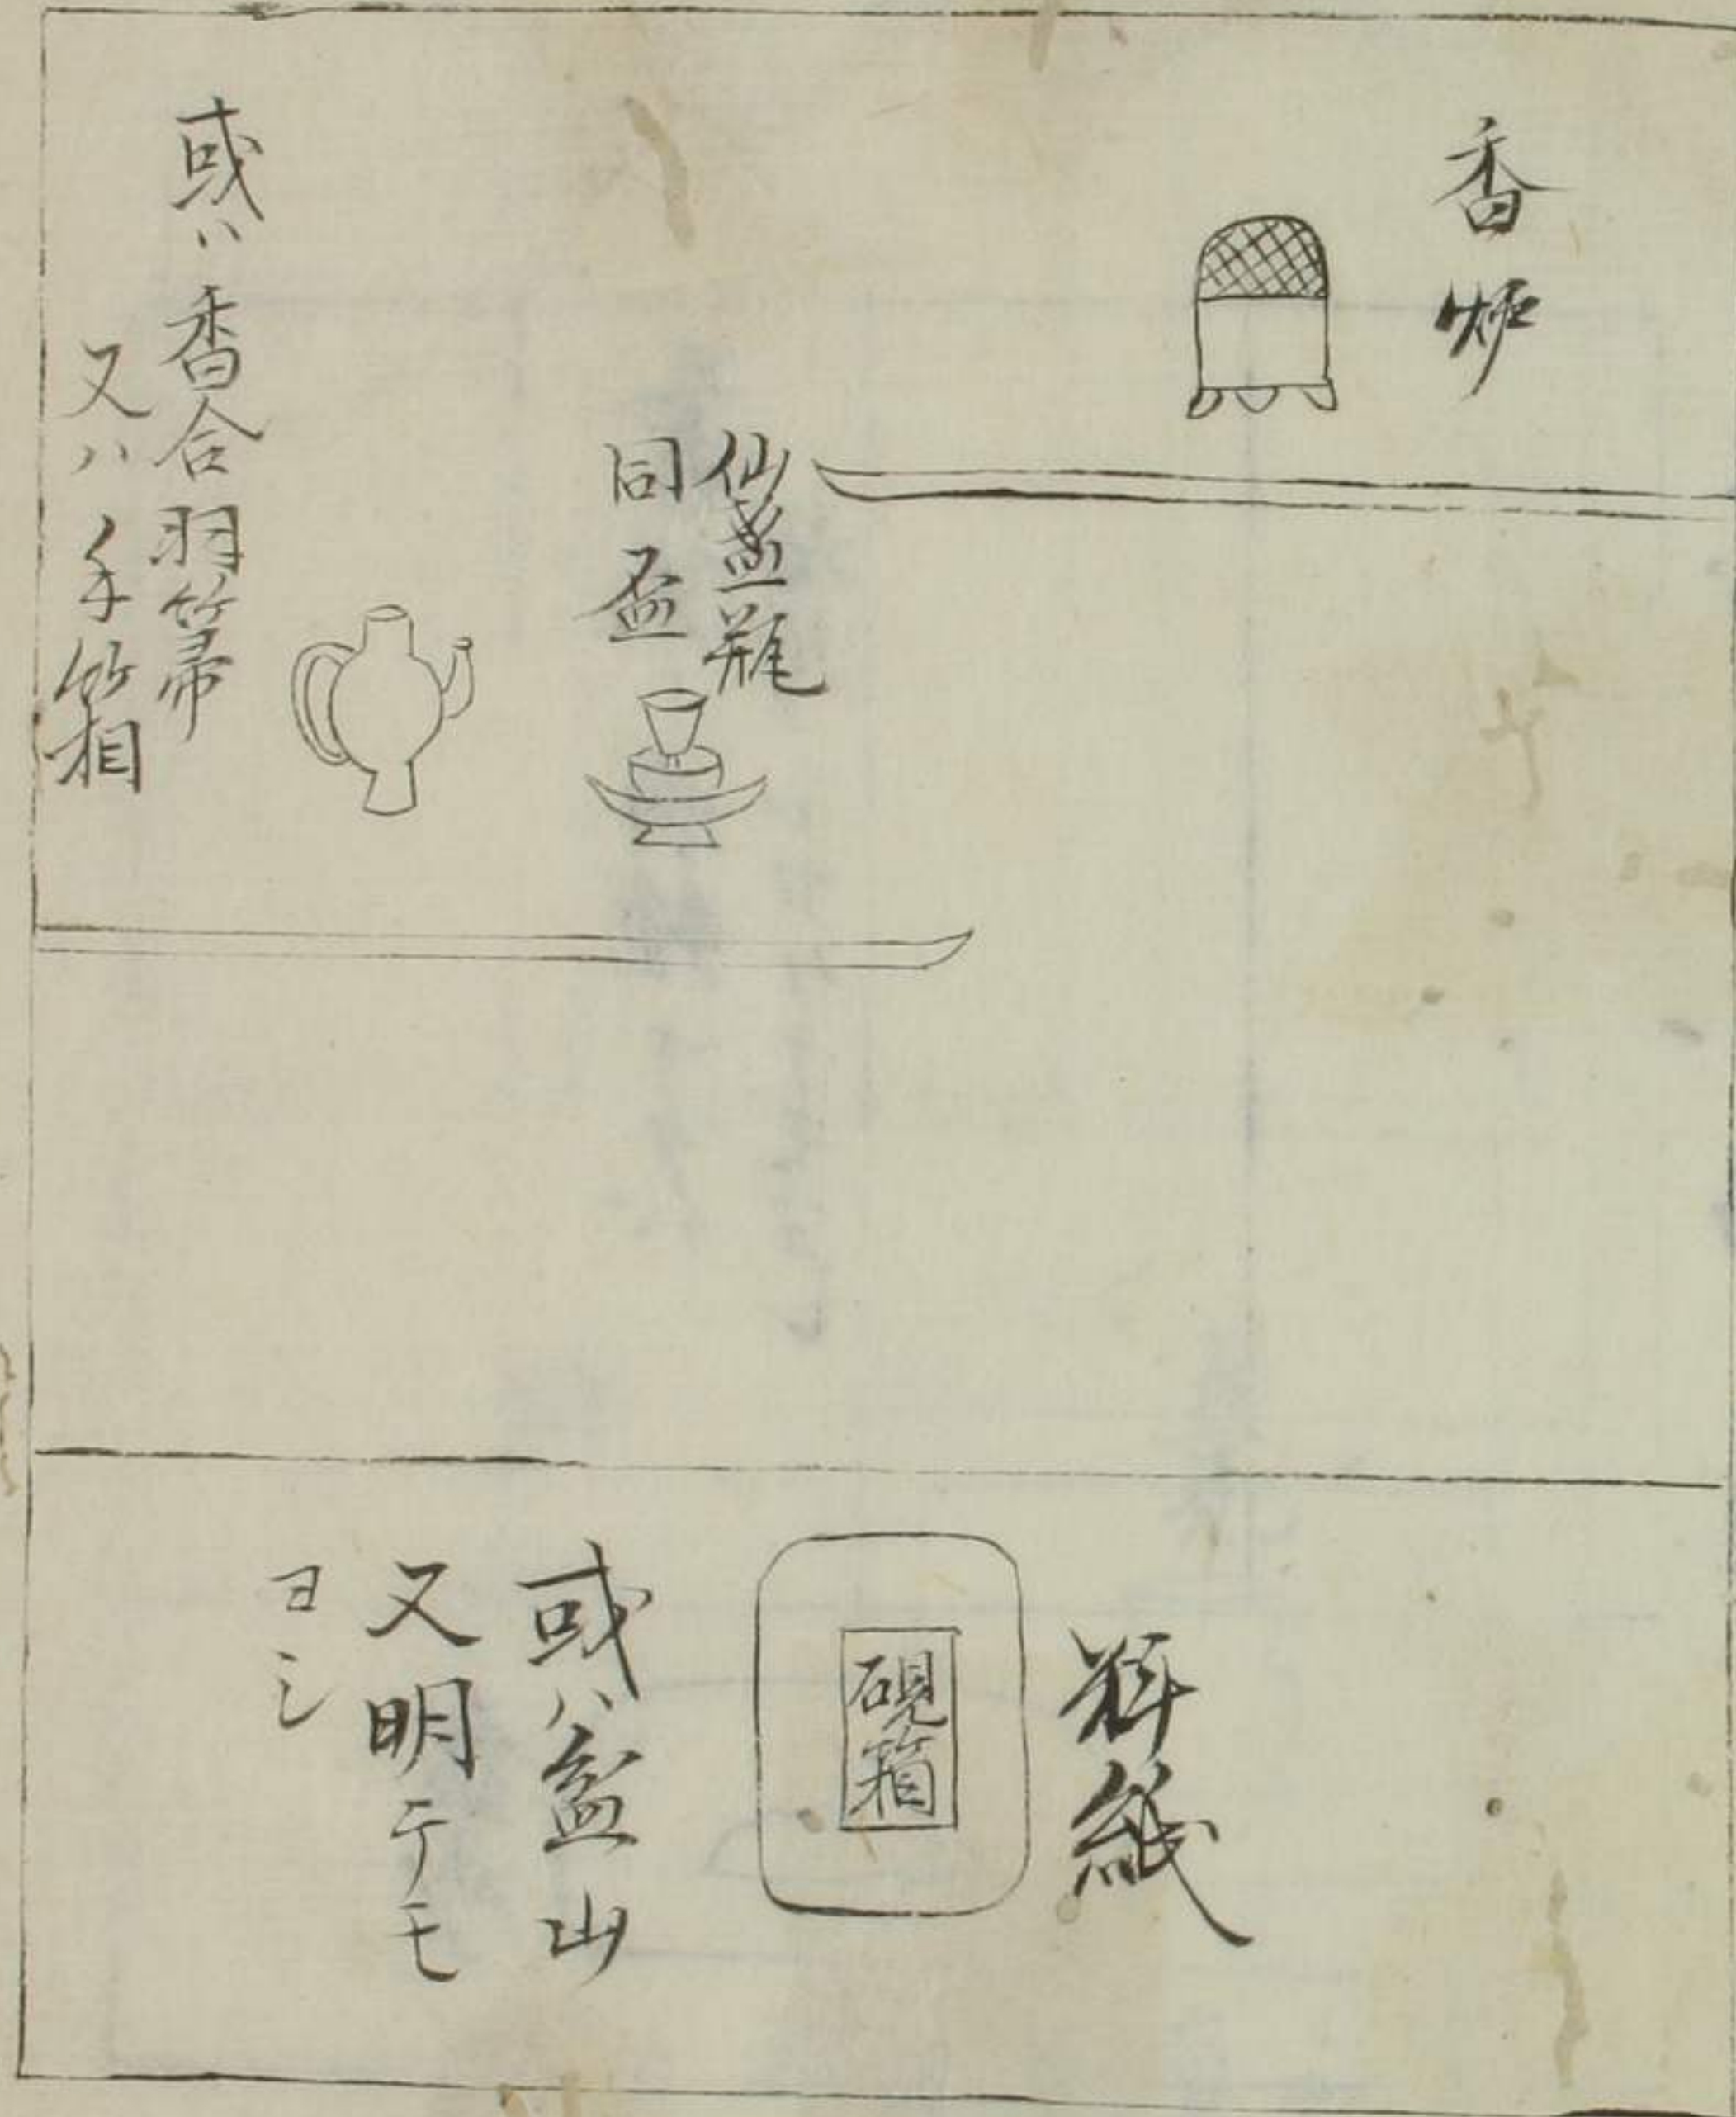 香炉
仙盞瓶
同盃
或ハ香合羽箒
又ハ手箱
料紙
硯箱
或ハ盆山
又明テモ
ヨシ